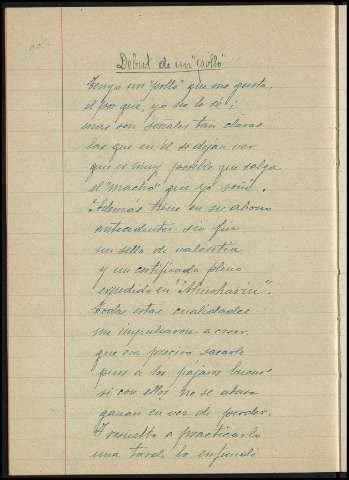 Debut de un "pollo"
Tengo un "pollo" que me gusta,
el por que, yo no lo sé;
mas son señales tan claras
las que en el se dejan ver
que es muy posible que salga
el "macho" que yo soñé.
Además tiene en su abono
antecedentes
un sello de valentía
y un certificado pleno
expedido en "Almoharín".
Todas estas cualidades
me impulsaron a creer
que era preciso sacarle
pues a los pájaros buenos
si con ellos no se abusa
ganan en vez de perder.
Y resuelto a practicarlo
una tarde lo enfundé